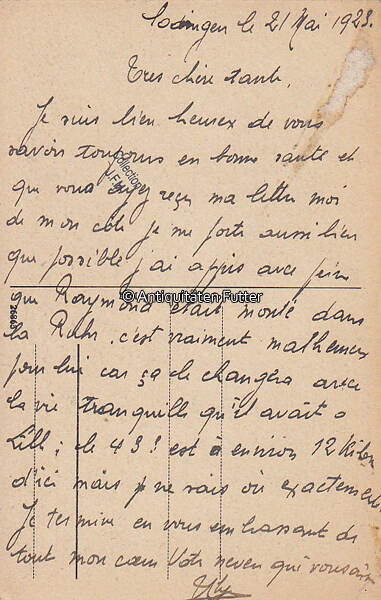 le 21 Mai 1923.
Tres chère tante,
Je suis bien heureux de vous
savoir toujours en bonne santé et
que vous ayez reçu ma lettre moi
de mon côté je me porte aussi bien
que possible j'ai appris avec peine
que Raymond était monté dans
la Ruhr. c'est vraiment malheureux
pour lui car ça le changera avec
la vie tranquille qu'il avait a
Lille; le 43e est à environ 12 Kilom
d'ici mais je ne sais où exactement
Je termine en vous embrassant de
tout mon cœur Votre neveu qui vous aime
Collection
© Antiquitäten Futter